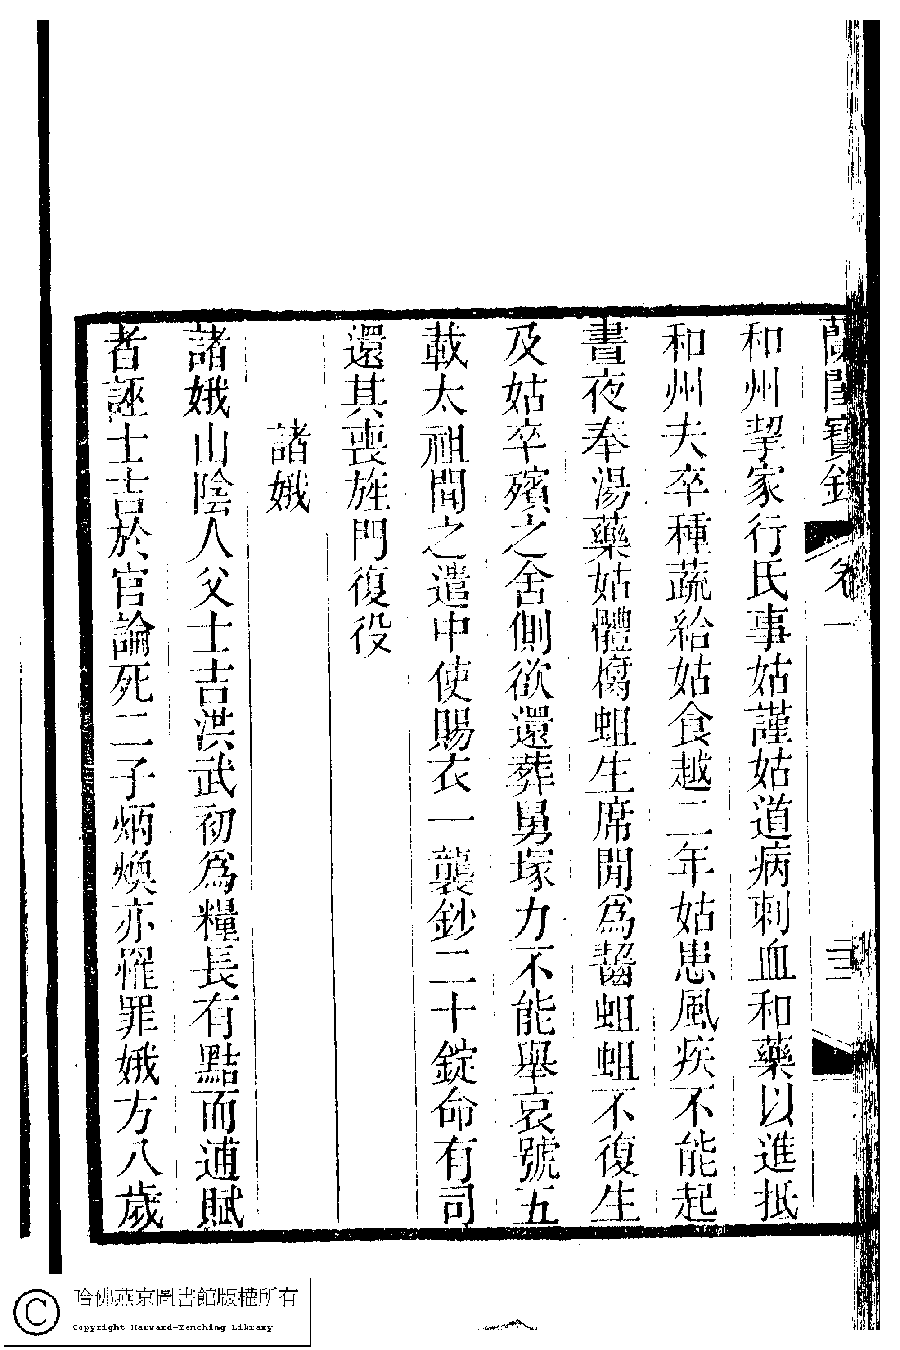 蘭閨寶錄 卷一 三
和州挈家行氏事姑謹姑道病刺血和藥以進抵
和州夫卒種蔬給姑食越二年姑患風疾不能起
晝夜奉湯藥姑體腐蛆生席閒為齧蛆蛆不復生
及姑卒殯之舍側欲還葬舅塚力不能舉哀號五
載太祖聞之遣中使賜衣一襲鈔二十錠命有司
還其喪旌門復役
諸娥
諸娥山陰人父士吉洪武初為糧長有點而逋賦
者誣士吉於官論死二子炳煥亦罹罪娥方八歲
哈佛燕京圖書館版權所有
Copyright Harvard-Yenching Library